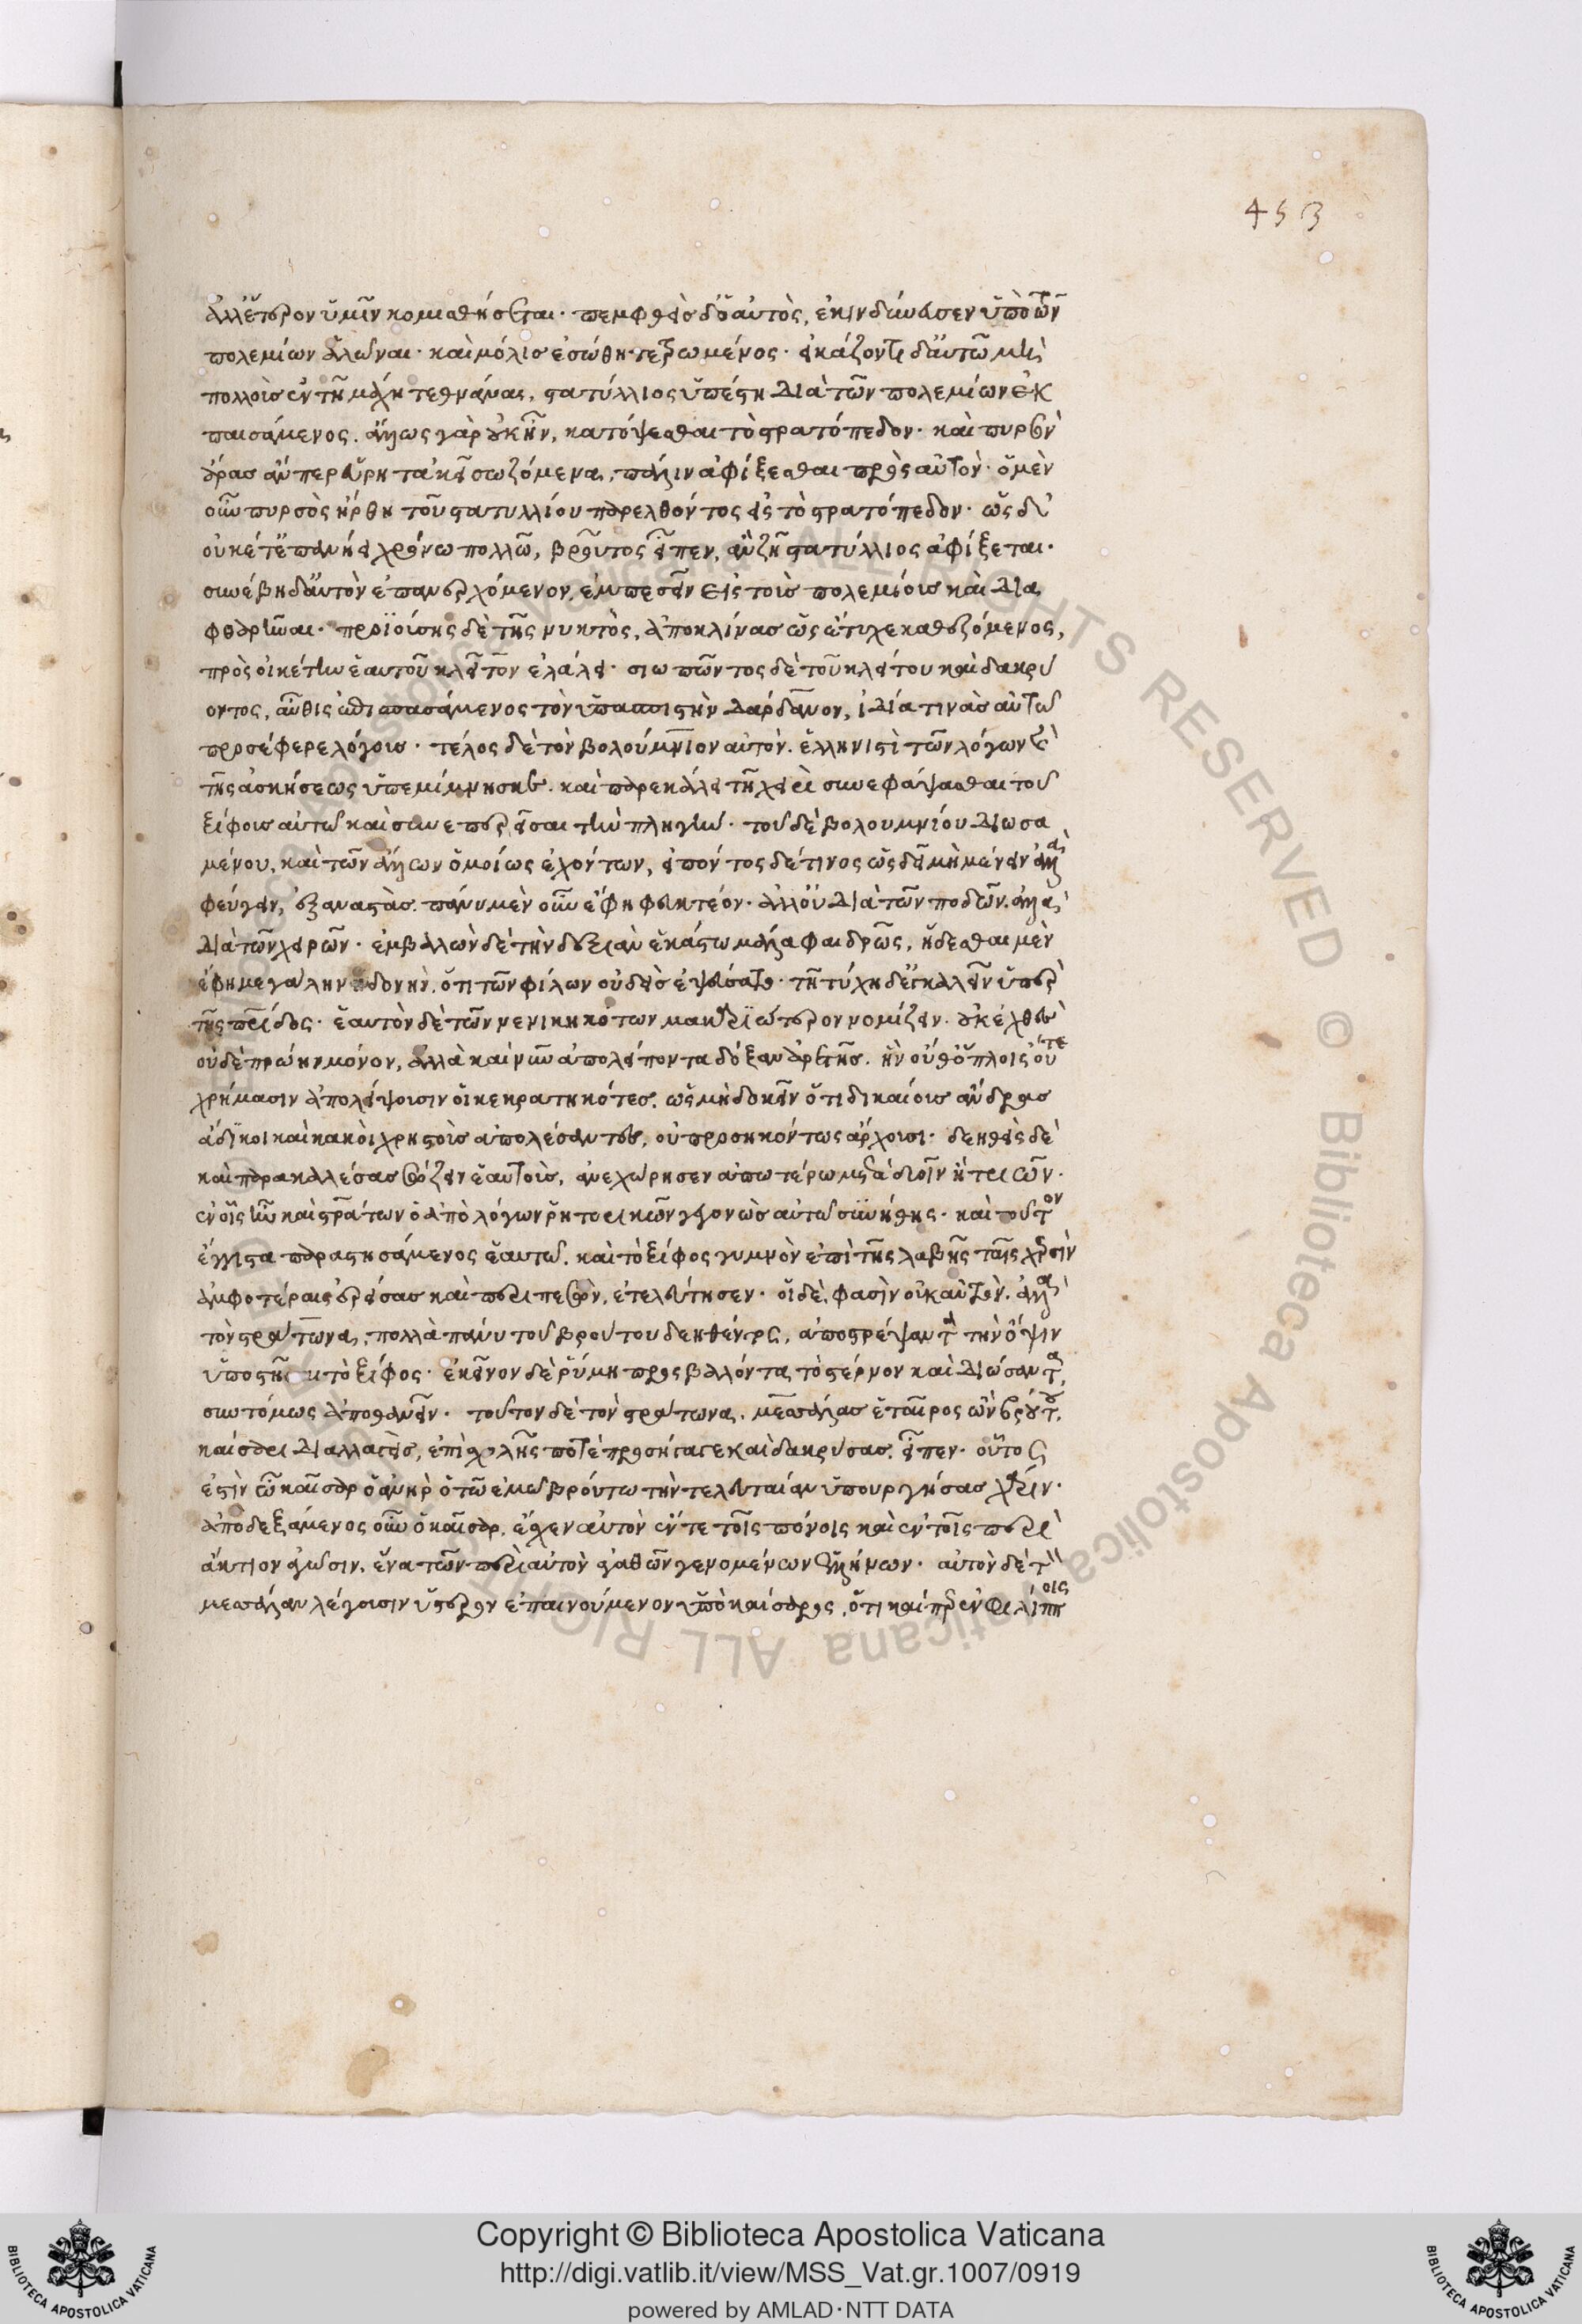 453
ἀλλ' ἕτερον ὑμῖν κομισθήσεται· πεμφθεὶς δ' ὁ αὐτὸς, ἐκινδύνευσεν ὑπὸ τῶν
πολεμίων ἁλῶναι· καὶ μόλις ἐσώθη τετρωμένος· εἰκάζοντι δ' αὐτῷ μὴ
πολλοὺς ἐν τῇ μάχῃ τεθνάναι, στατύλλιος ὑπέστη διὰ τῶν πολεμίων ἐκ
παισάμενος. ἄλλως γὰρ οὐκ ἦν, κατόψεσθαι τὸ στρατόπεδον· καὶ πυρσὸν
ἄρας ἄνπερ εὕρῃ τἀκεῖ σωζόμενα, πάλιν ἀφίξεσθαι πρὸς αὐτόν· ὁ μὲν
οὖν πυρσὸς ἤρθη τοῦ στατυλλίου παρελθόντος εἰς τὸ στρατόπεδον· ὡς δ'
οὐκ ἐπανῄει χρόνῳ πολλῷ, βροῦτος εἶπεν, ἂν ζῇ στατύλλιος ἀφίξεται·
συνέβη δ' αὐτὸν ἐπανερχόμενον, ἐμπεσεῖν εἰς τοὺς πολεμίους καὶ δια
φθαρῆναι· προϊούσης δὲ τῆς νυκτὸς, ἀποκλίνας ὡς ἔτυχε καθεζόμενος,
πρὸς οἰκέτην ἑαυτοῦ κλεῖτον ἐλάλει· σιωπῶντος δὲ τοῦ κλείτου καὶ δακρύ
οντος, αὖθις ἐπισπασάμενος τὸν ὑπασπιστὴν δάρδανον, ἰδίᾳ τινὰς αὐτῷ
προσέφερε λόγους· τέλος δὲ τὸν βολούμνιον αὐτὸν. ἑλληνιστὶ τῶν λόγων καὶ
τῆς ἀσκήσεως ὑπεμίμνησκεν. καὶ παρεκάλει τῇ χειρὶ συνεφάψασθαι τοῦ
ξίφους αὐτῷ καὶ συνεπερεῖσαι τὴν πληγήν· τοῦ δὲ βολουμνίου διωσα
μένου, καὶ τῶν ἄλλων ὁμοίως ἐχόντων, εἰπόντος δέ τινος ὡς δεῖ μὴ μένειν ἀλλὰ
φεύγειν, ἐξαναστὰς. πάνυ μὲν οὖν ἔφη φευκτέον· ἀλλ' οὐ διὰ τῶν ποδῶν. ἀλλὰ
διὰ τῶν χειρῶν· ἐμβαλὼν δὲ τὴν δεξιὰν ἑκάστῳ μάλα φαιδρῶς, ἥδεσθαι μὲν
ἔφη μεγάλην ἡδονὴν, ὅτι τῶν φίλων οὐδεὶς ἐψεύσατο· τῇ τύχῃ δ' ἐγκαλεῖν ὑπὲρ
τῆς πατρίδος· ἑαυτὸν δὲ τῶν νενικηκότων μακαριώτερον νομίζειν. οὐκ ἐχθὲς
οὐδὲ πρώην μόνον, ἀλλὰ καὶ νῦν ἀπολείποντα δόξαν ἀρετῆς. ἣν οὔθ' ὅπλοις οὔτε
χρήμασιν ἀπολείψουσιν οἱ κεκρατηκότες. ὡς μὴ δοκεῖν ὅτι δικαίους ἄνδρας
ἄδικοι καὶ κακοὶ χρηστοὺς ἀπολέσαντες, οὐ προσηκόντως ἄρχουσι· δεηθεὶς δὲ
καὶ παρακαλέσας σώζειν ἑαυτοὺς, ἀνεχώρησεν ἀπωτέρω μετὰ δυοῖν ἢ τριῶν.
ἐν οἷς ἦν καὶ στράτων ὁ ἀπὸ λόγων ῥητορικῶν γεγονὼς αὐτῷ συνήθης· καὶ τοῦτον
ἔγγιστα παραστησάμενος ἑαυτῷ. καὶ τὸ ξίφος γυμνὸν ἐπὶ τῆς λαβῆς ταῖς χερσὶν
ἀμφοτέραις ἐρείσας καὶ περιπεσὼν, ἐτελεύτησεν· οἱ δέ, φασὶν οὐκ αὐτὸν. ἀλλὰ
τὸν στράτωνα, πολλὰ πάνυ τοῦ βρούτου δεηθέντος, ἀποστρέψαντα τὴν ὄψιν
ὑποστῆσαι τὸ ξίφος· ἐκεῖνον δὲ ῥύμῃ προσβαλόντα τὸ στέρνον καὶ διώσαντα,
συντόμως ἀποθανεῖν· τοῦτον δὲ τὸν στράτωνα. μεσσάλας ἑταῖρος ὢν βρούτου,
καίσαρι διαλλαγεὶς, ἐπὶ σχολῆς ποτὲ προσήγαγε καὶ δακρύσας. εἶπεν· οὗτος
ἐστὶν ὦ καῖσαρ ὁ ἀνὴρ ὁ τῷ ἐμῷ βρούτῳ τὴν τελευταίαν ὑπουργήσας χάριν·
ἀποδεξάμενος οὖν ὁ καῖσαρ, ἔσχεν αὐτὸν ἔν τε τοῖς πόνοις καὶ ἐν τοῖς περὶ
ἄκτιον ἀγῶσιν. ἕνα τῶν περὶ αὐτὸν ἀγαθῶν γενομένων ἑλλήνων· αὐτὸν δὲ τὸν
μεσσάλαν λέγουσιν ὕστερον ἐπαινούμενον ὑπὸ καίσαρος, ὅτι καίπερ ἐν φιλίπποις
Copyright © Biblioteca Apostolica Vaticana
http://digi.vatlib.it/view/MSS_Vat.gr.1007/0919
powered by AMLAD·NTT DATA